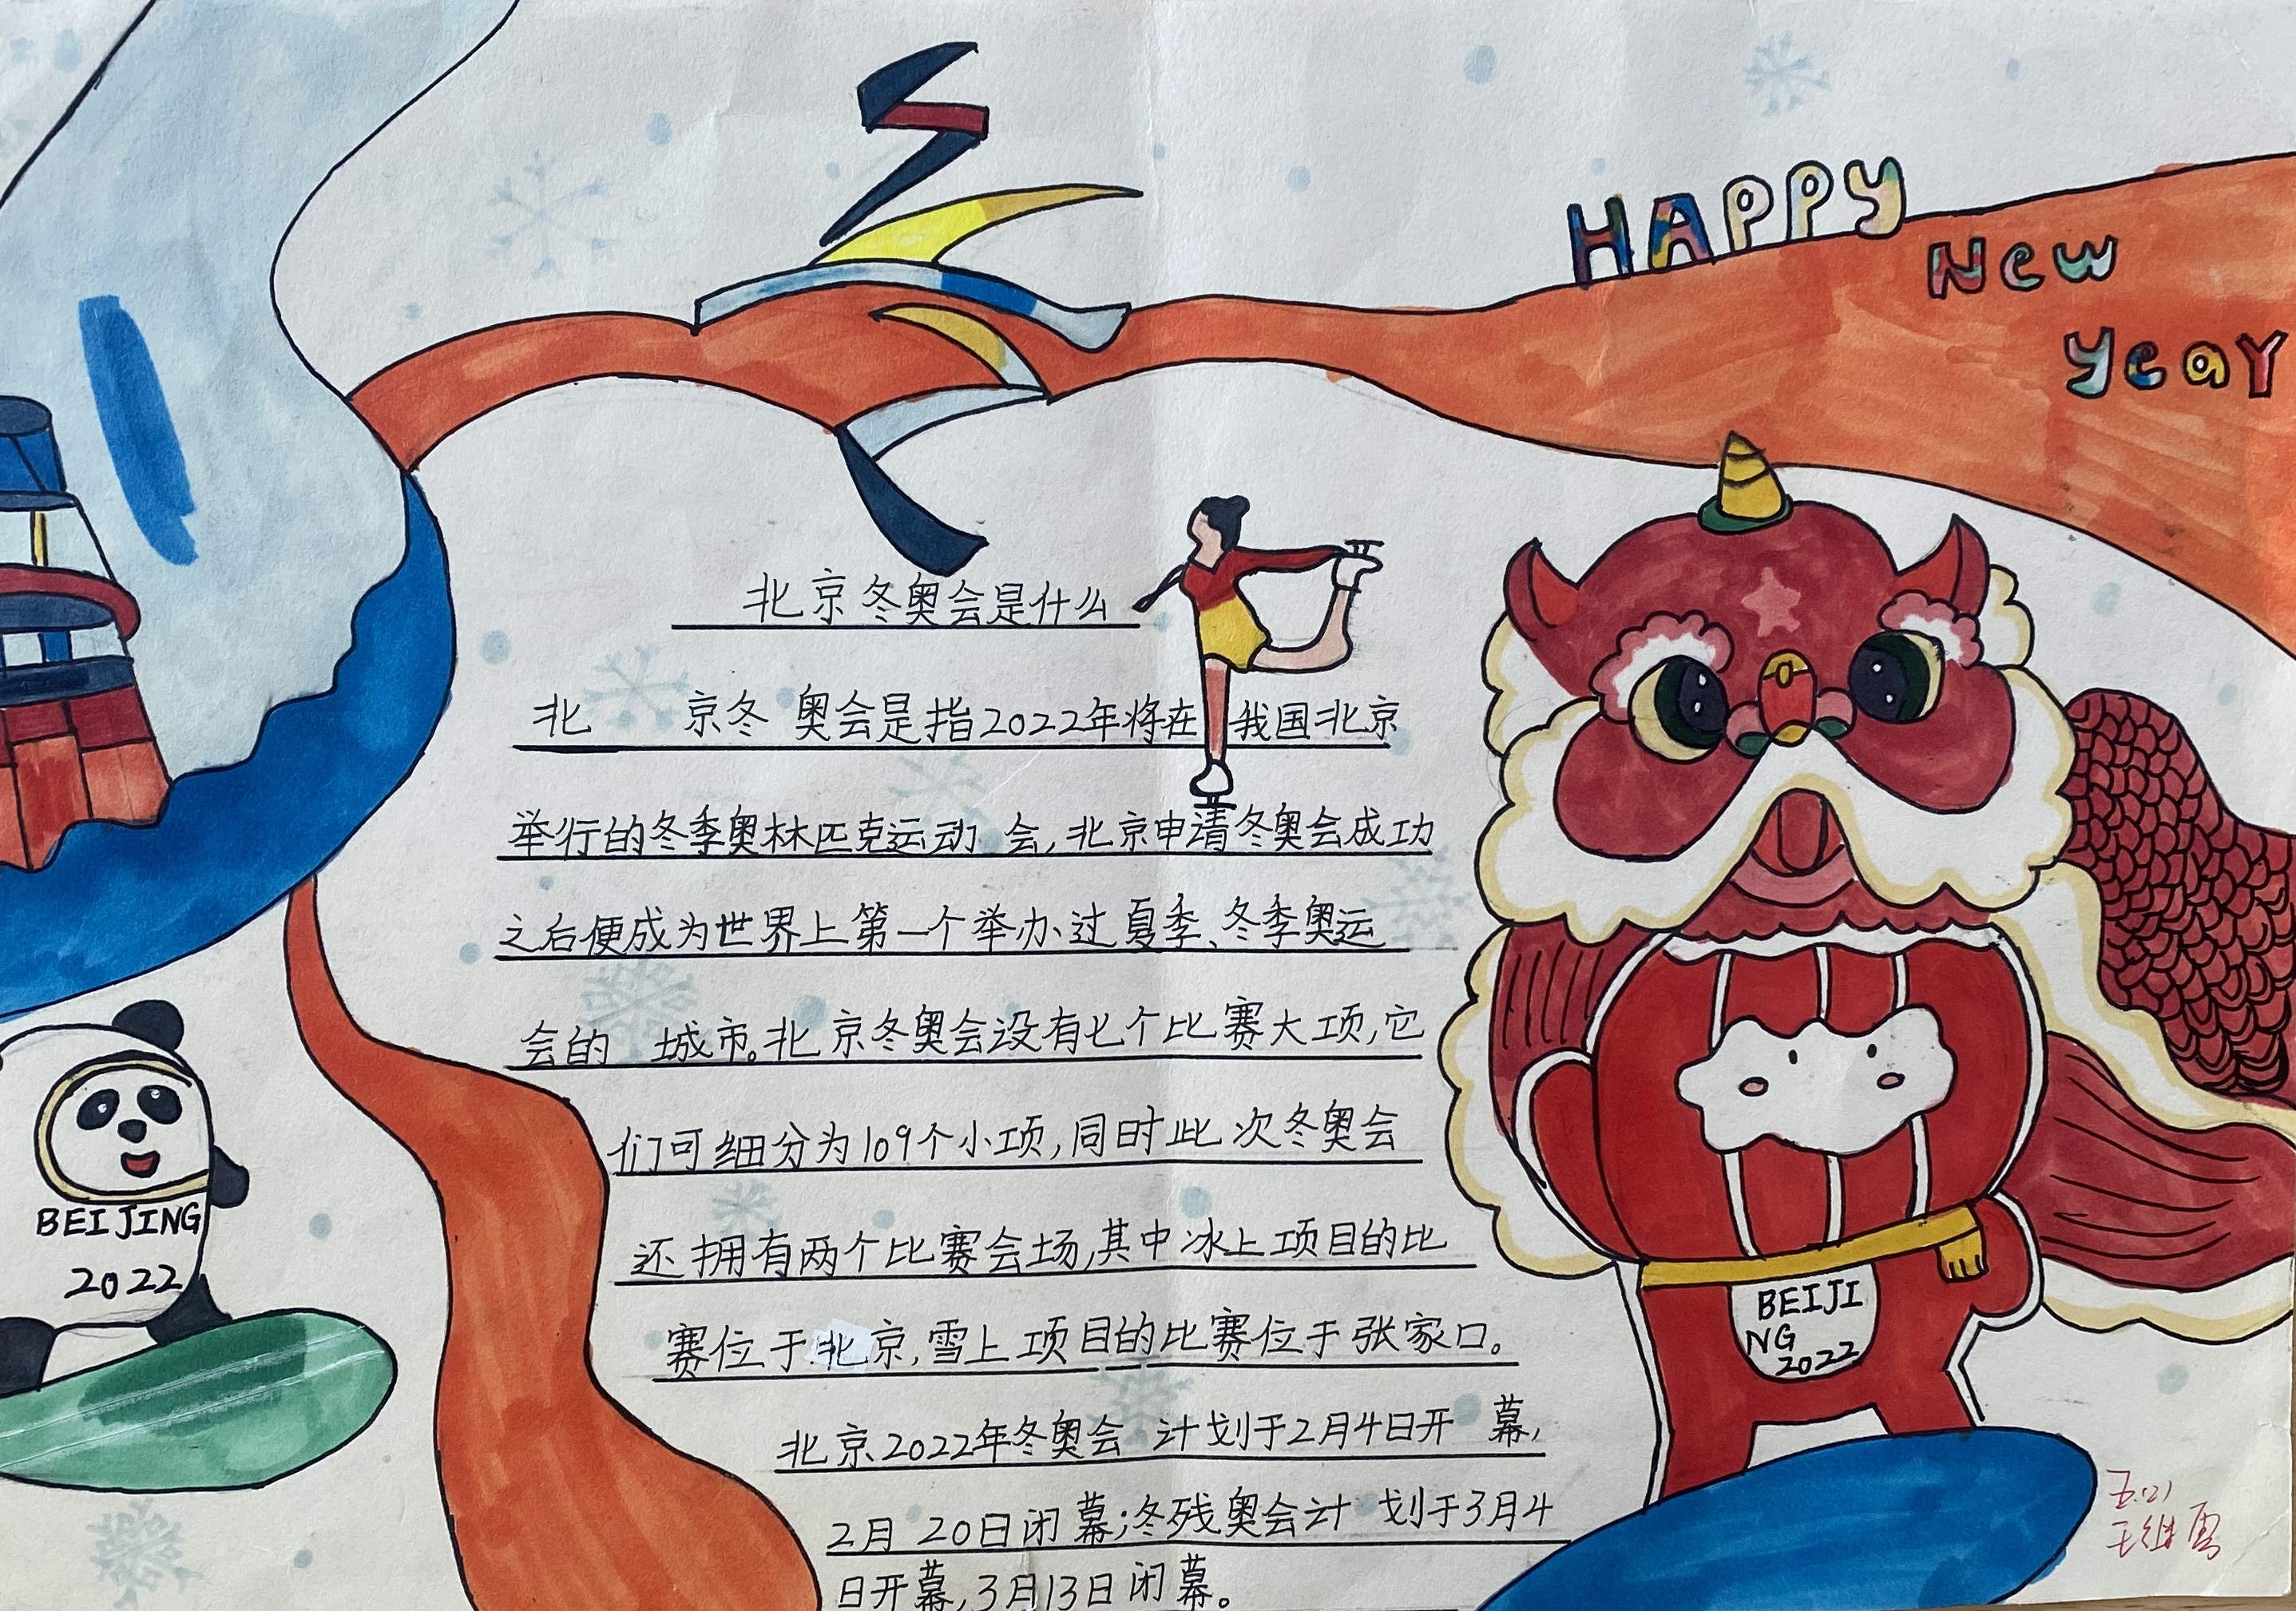 HAPPY
New
Year
北京冬奥会是什么
北京冬奥会是指2022年将在我国北京
举行的冬季奥林匹克运动会,北京申请冬奥会成功
之后便成为世界上第一个举办过夏季、冬季奥运
会的城市。北京冬奥会设有七个比赛大项,它
们可细分为109个小项,同时此次冬奥会
还拥有两个比赛会场,其中冰上项目的比
赛位于北京,雪上项目的比赛位于张家口。
北京2022年冬奥会计划于2月4日开幕,
2月20日闭幕;冬残奥会计划于3月4
日开幕,3月13日闭幕。
BEIJING
2022
BEIJI
NG
2022